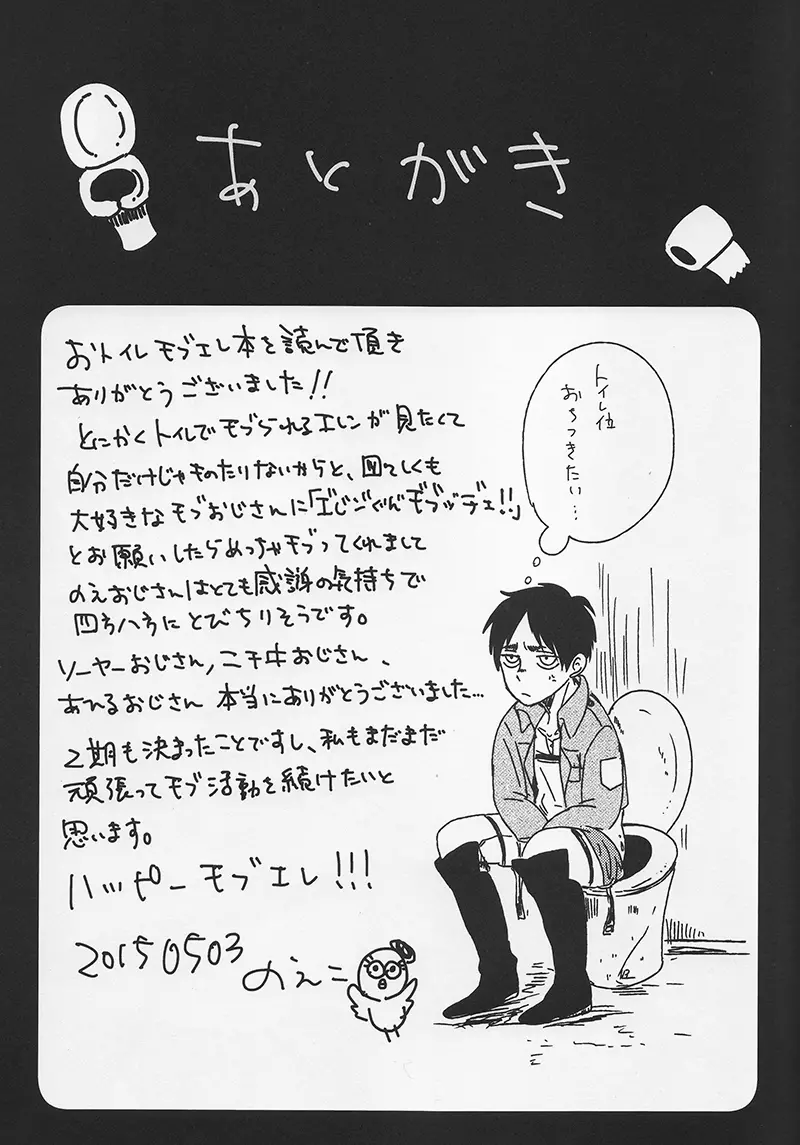 あとがき
おトイレモブエレ本を読んで頂き
ありがとうございました!!
とにかくトイレでモブられるエレンが見たくて
自分だけじゃものたりないからと、図々しくも
大好きなモブおじさんに「
とお願いしたらめっちゃモブってくれまして
のえおじさんはとても感謝の気持ちで
四方八方にとびちりそうです。
ソーヤーおじさん,
おじさん、
あひるおじさん 本当にありがとうございました…
2期も決まったことですし、私もまだまだ
頑張ってモブ活動を続けたいと
思います。
ハッピーモブエレ!!!
20150503
のえこ
トイレ位
おちつきたい…